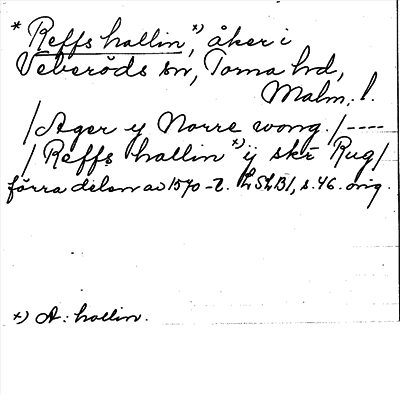 * Reffs hallin,*) åker i
Veberöds sn, Torna hd,
Malm. l.
/Ager y Norre wong./----
/Reffs hallin *) ÿ skr Rug/
förra delen av 1570-t. LSLB1, s. 46. orig.
*) A: hallin.